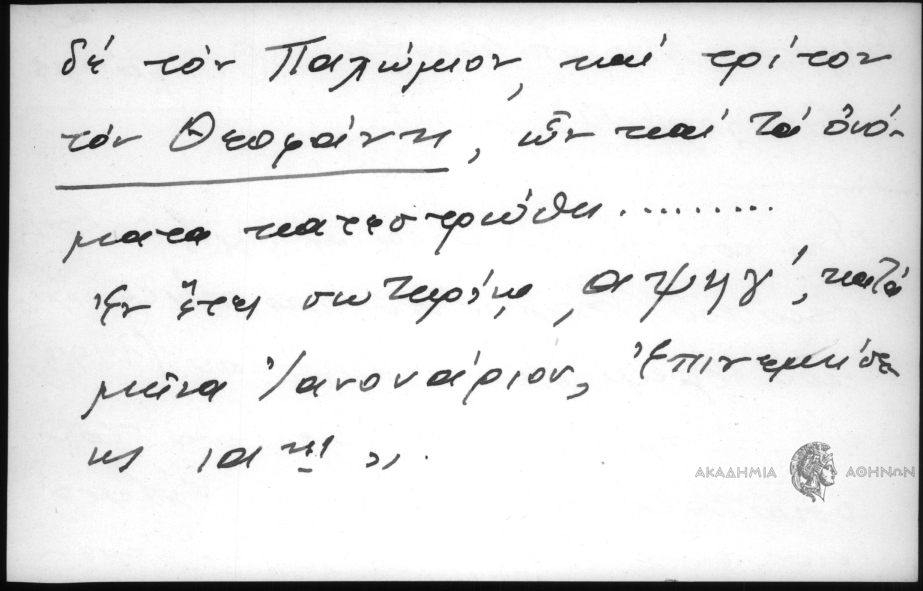 δέ τόν Παχώμιον, καί τρίτον
τόν Θεοφάνην, ὧν καί τά ὀνό-
ματα κατεστρώθη.........
ἐν ἔτει σωτηρίῳ, αψηγ´, κατά
μῆνα Ἰανουάριον, Ἐπινεμήσε
ως ιαης ».
ΑΚΑΔΗΜΙΑ ΑΘΗΝΩΝ